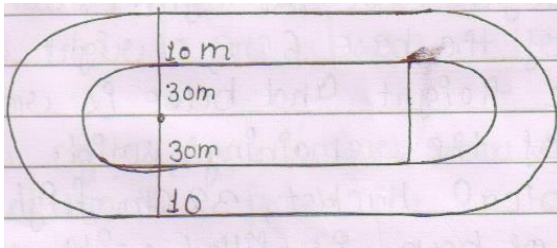 10 m
30m
30m
10